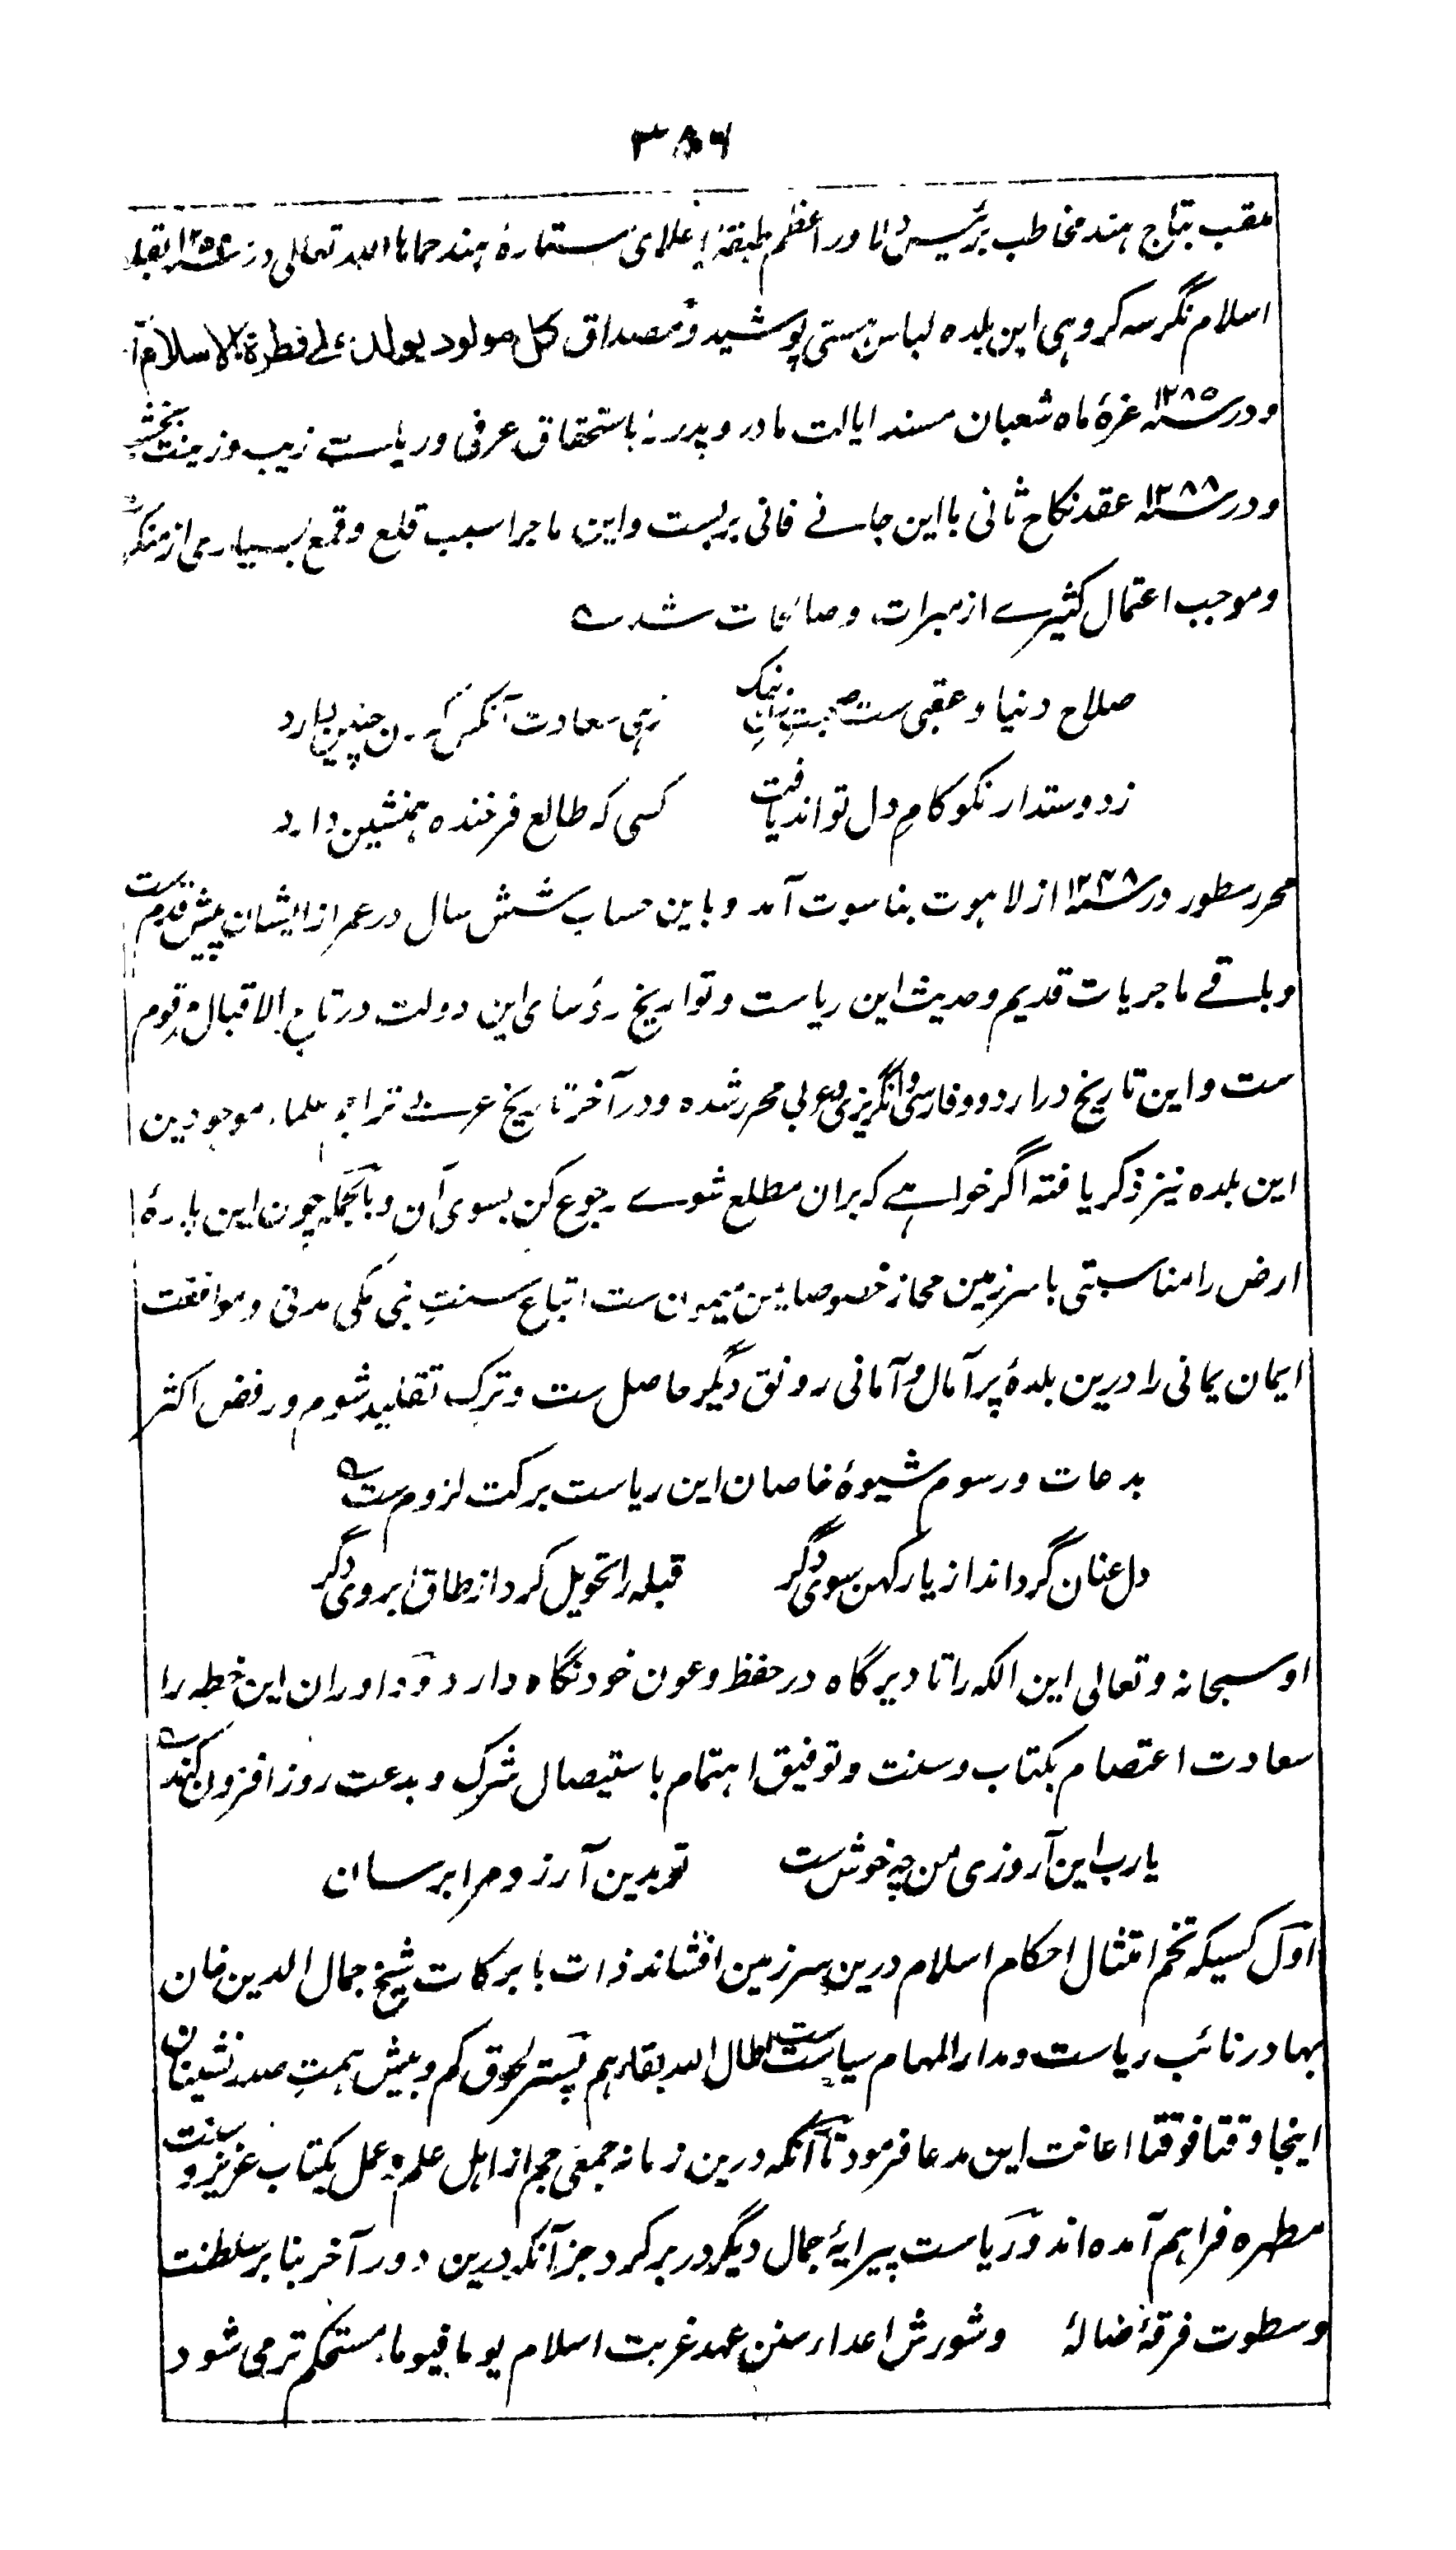 ۳۸۶
ملقب بتاج هند مخاطب برئیس دلاور اعظم طبقهٔ اعلای ستارهٔ هند حماها الله تعالی در ۱۲۵۴ بقلعهٔ
اسلام نگر سه کروهی این بلده لباس هستی پوشید و مصداق کل مولود یولد علی فطرة الاسلام آمد
و در ۱۲۸۵ غرهٔ ماه شعبان مسند ایالت مادر و پدر را باستحقاق عرفی و ریاست زیب و زینت بخشید
و در ۱۲۸۸ عقد نکاح ثانی با این جانے فانی بربست و این ماجرا سبب قلع و قمع بسیاری از منکرات
و موجب اعتمال کثیرے از مبرات و صالحات شدے
صلاح دنیا و عقبی ست صحبتِ زنِ نیک
زهی سعادت آنکس که زن چنین دارد
ز دوستدار نکو کامِ دل تواند یافت
کسی که طالع فرخنده همنشین دارد
محرر سطور در ۱۲۴۸ از لاهوت بناسوت آمد و باین حساب شش سال در عمر از ایشان پیش قدم ست
و باقے ماجریات قدیم و حدیث این ریاست و تواریخ رؤسای این دولت در تاج الاقبال مرقوم
ست و این تاریخ در اردو و فارسی و انگریزی و عربی محرر شده و در آخر تاریخ عربے تراجم علماء موجودین
این بلده نیز ذکر یافته اگر خواهے که بران مطلع شوے رجوع کن بسوی آن و بالجمله چون این پارهٔ
ارض را مناسبتی با سرزمین حجاز خصوصا یمن میمون ست اتباع سنتِ نبی مکی مدنی و موافقت
ایمان یمانی را درین بلدهٔ پر آمال و آمانی رونق دیگر حاصل ست و ترک تقلید شوم و رفض اکثر
بدعات و رسوم شیوهٔ خاصان این ریاست برکت لزوم ست
دل عنان گرداند از یار کهن سوی دگر
قبله را تحویل کرد از طاق ابروی دگر
او سبحانه و تعالی این الکه را تا دیرگاه در حفظ و عون خود نگاه دارد و داوران این خطه را
سعادت اعتصام بکتاب و سنت و توفیق اهتمام باستیصال شرک و بدعت روز افزون کند
یارب این آرزوی من چه خوش ست
تو بدین آرزو مرا برسان
اوّل کسیکه تخم امتثال احکام اسلام درین سرزمین افشاند ذات با برکات شیخ جمال الدین خان
بهادر نائب ریاست و مدار المهام سیاست ست اطال الله بقاءهم پستر لحوق کم و بیش همتِ صدر نشینان
اینجا وقتا فوقتا اعانت این مدعا فرمود تا آنکه درین زمانه جمعی جم از اهل علم و عمل بکتاب عزیز و سنت
مطهره فراهم آمده اند و ریاست پیرایهٔ جمال دیگر در بر کرد جز آنکه درین دور آخر بنا بر سلطنت
و سطوت فرقهٔ ضالهٔ و شورش اعداء سنن عهد غربت اسلام یوما فیوما مستحکم تر می شود